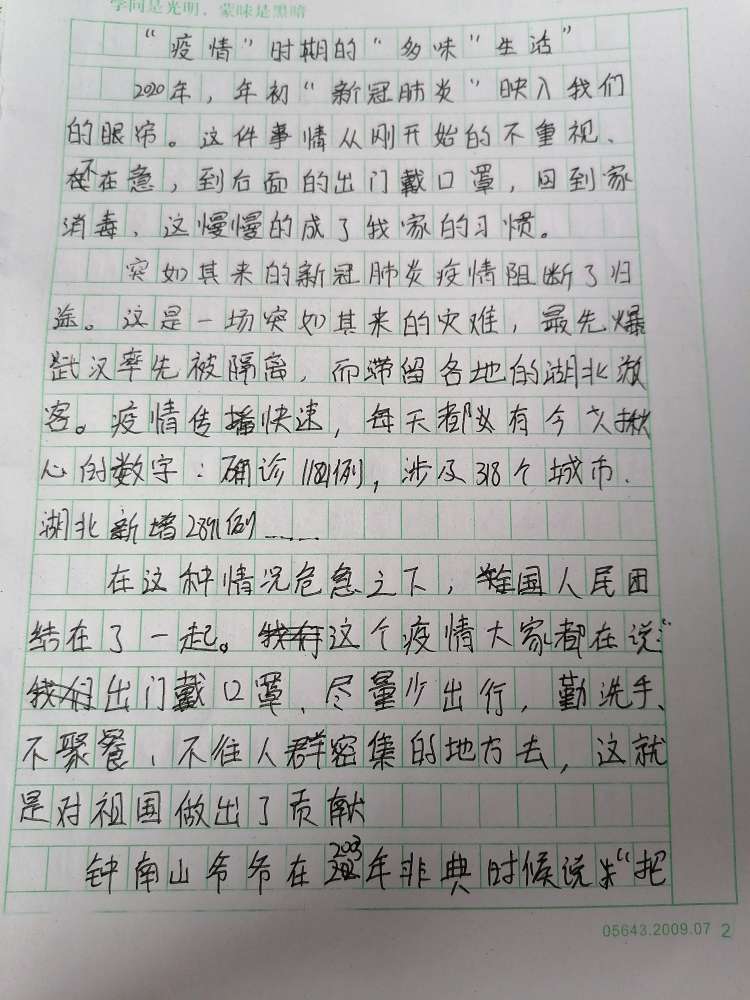 学问是光明，蒙昧是黑暗
“疫情”时期的“多味”生活”
2020年，年初“新冠肺炎”映入我们
的眼帘。这件事情从刚开始的不重视、
不在急，到后面的出门戴口罩，回到家
消毒、这慢慢的成了我家的习惯。
突如其来的新冠肺炎疫情阻断了归
途。这是一场突如其来的灾难，最先爆
武汉率先被隔离，而滞留各地的湖北游
客。疫情传播快速，每天都有令人揪
心的数字：确诊11821例，涉及318个城市、
湖北新增2891例……
在这种情况危急之下，全国人民团
结在了一起。这个疫情大家都在说：“
出门戴口罩、尽量少出行，勤洗手、
不聚餐、不往人群密集的地方去，这就
是对祖国做出了贡献
钟南山爷爷在2003年非典时候说“把
05643.2009.07 2